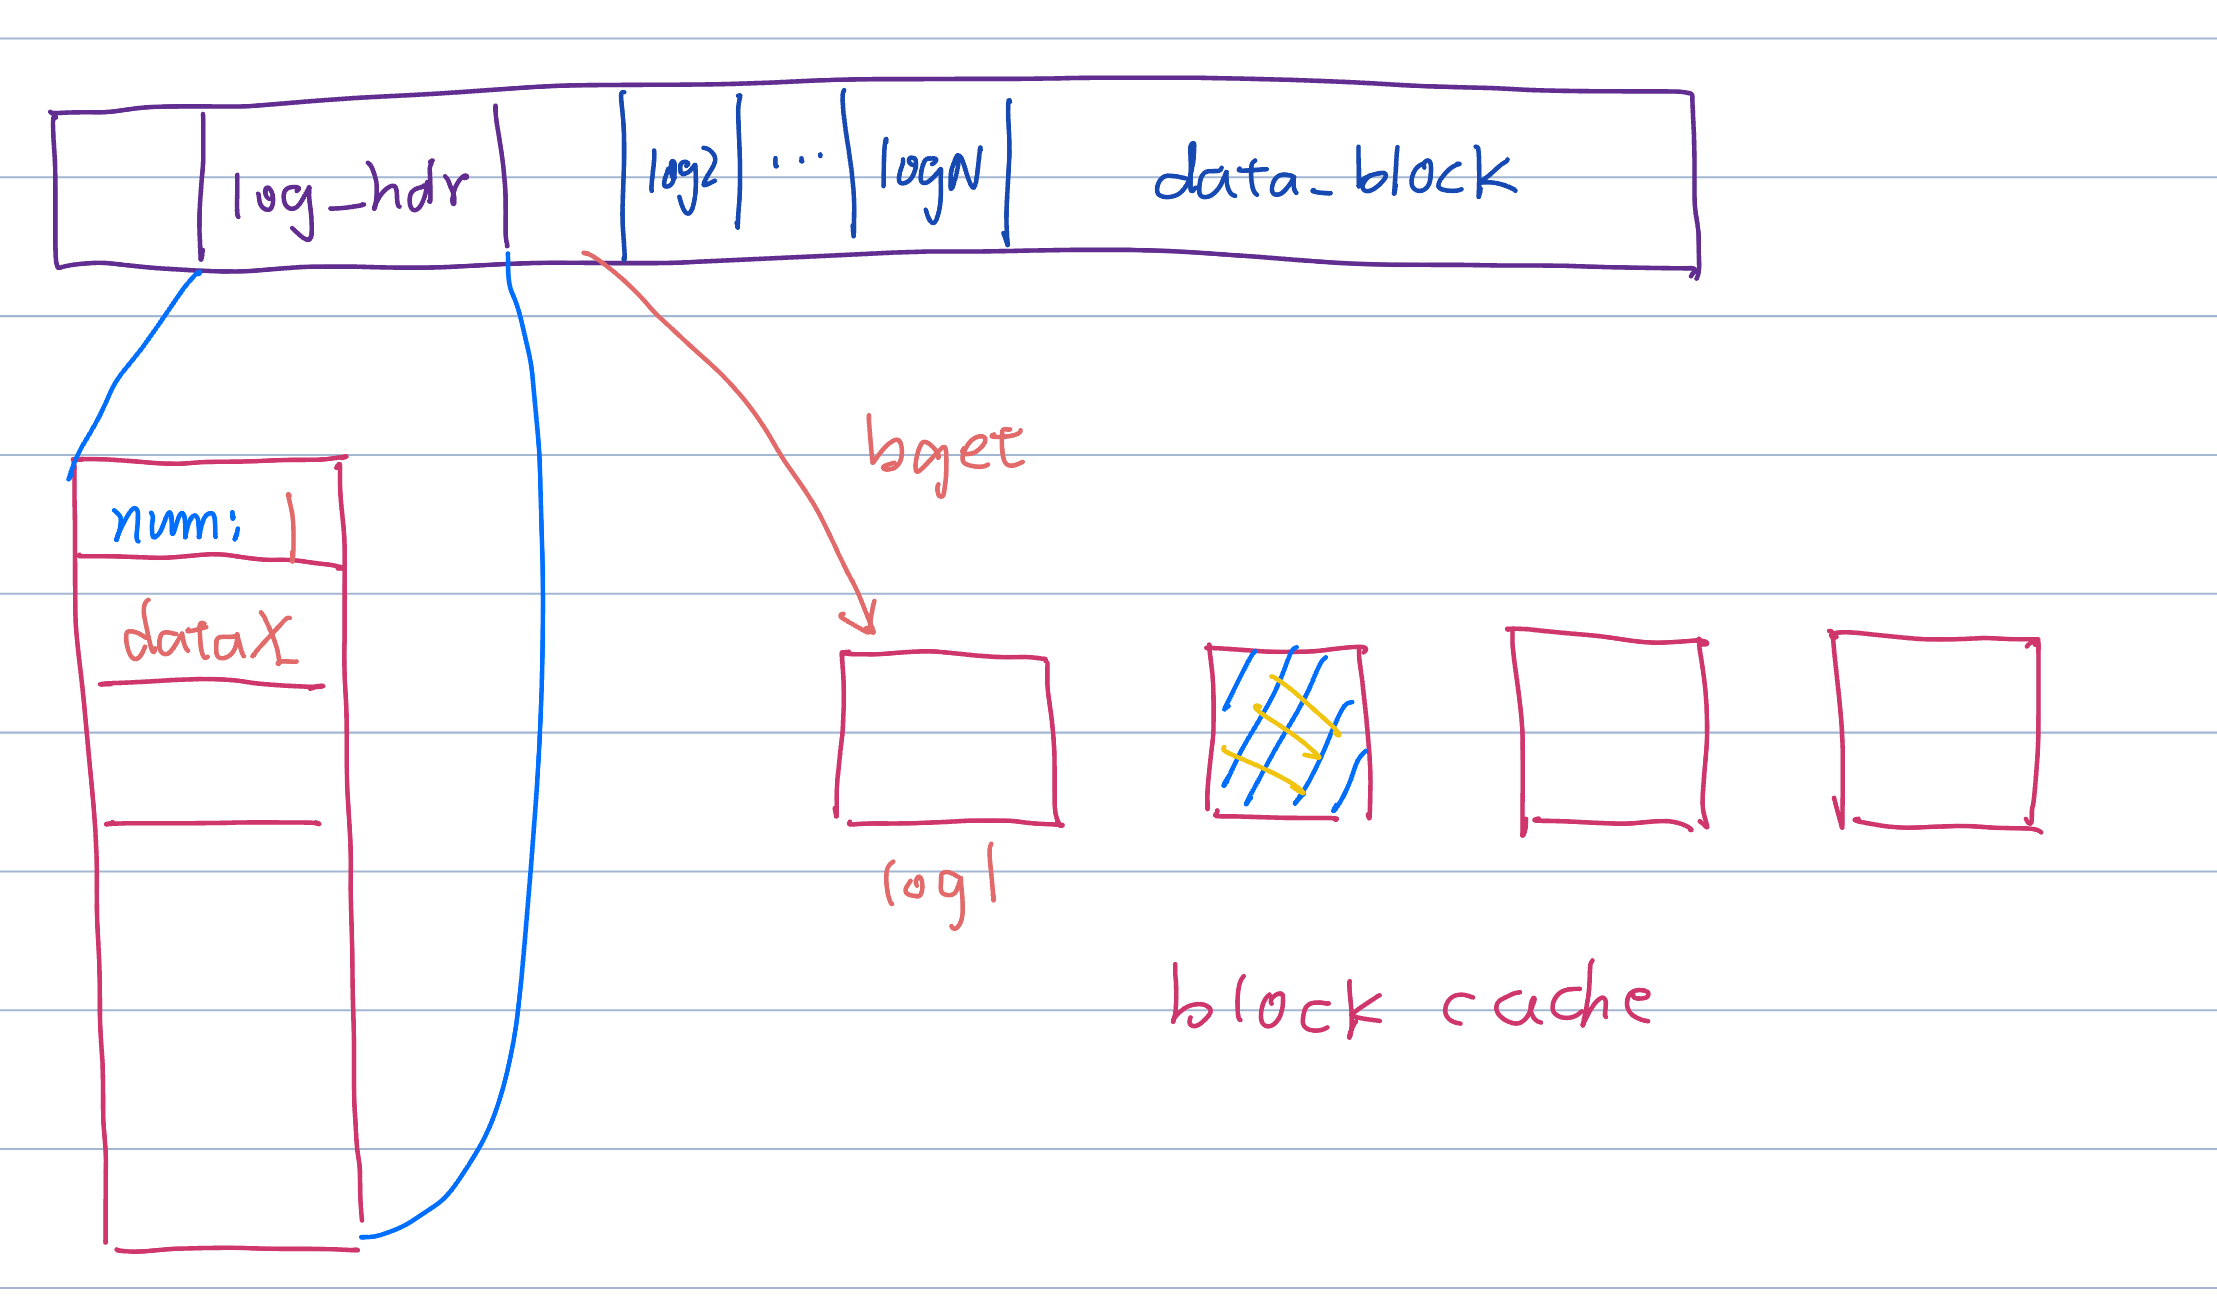 log_hdr log2 ... logN data_block
bget
num: 1
dataX
log1
block cache